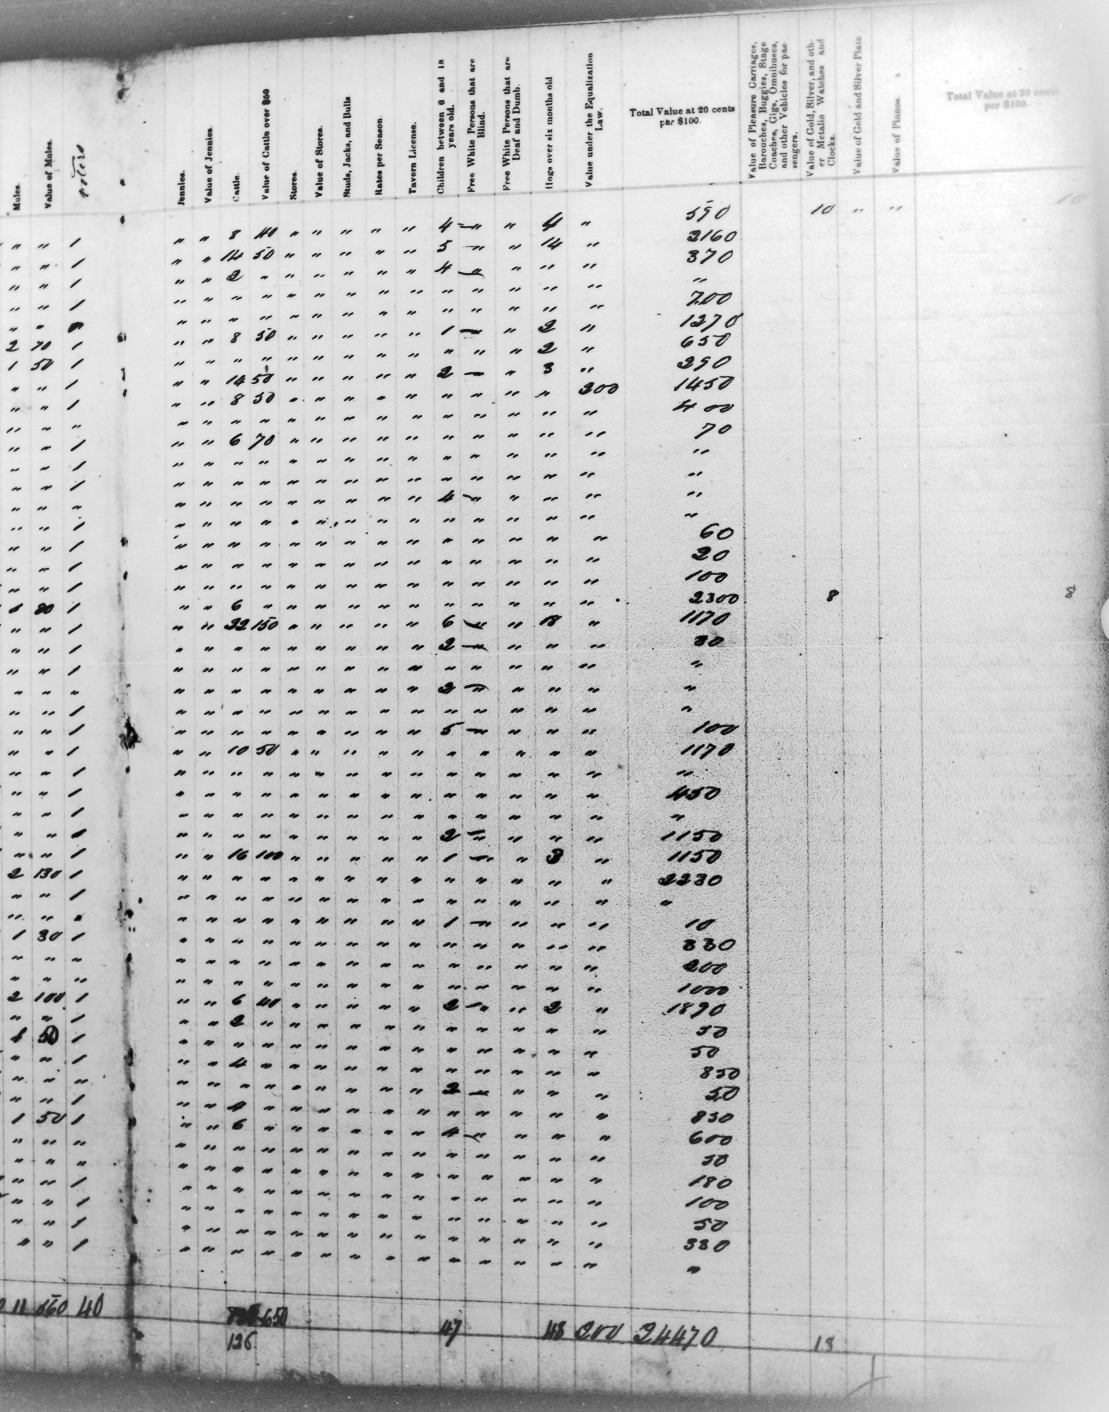 Mules.
Value of Mules.
voters
Jennies.
Value of Jennies.
Cattle.
Value of Cattle over $50
Stores.
Value of Stores.
Studs, Jacks, and Bulls
Rates per Season.
Tavern License.
Children between 6 and 18 years old.
Free White Persons that are Blind.
Free White Persons that are Deaf and Dumb.
Hogs over six months old
Value under the Equalization Law.
Total Value at 20 cents per $100.
Value of Pleasure Carriages, Barouches, Buggies, Stage Coaches, Gigs, Omnibuses, and other Vehicles for passengers.
Value of Gold, Silver, and other Metalic Watches and Clocks.
Value of Gold and Silver Plate
Value of Pianos.
Total Value at 30 cents per $100.
" " 1 " " 8 40 " " " " " 4 " " 4 " 590 10 " " 10
" " 1 " " 14 50 " " " " " 5 " " 14 " 2160
" " 1 " " 2 " " " " " " 4 " " " " 370
" " 1 " " " " " " " " " " " " " " "
" " 1 " " " " " " " " " " " " " " 700
2 70 1 " " 8 50 " " " " " 1 " " 2 " 1270
1 50 1 " " " " " " " " " " " " 2 " 650
" " 1 " " 14 50 " " " " " 2 " " 3 "
" " 1 " " 8 50 " " " " " " " " " 300 1450
" " " " " " " " " " " " " " " " " 400
" " 1 " " 6 70 " " " " " " " " " " 70
" " 1 " " " " " " " " " " " " " " "
" " 1 " " " " " " " " " " " " " " "
" " " " " " " " " " " " 4 " " " " "
" " 1 " " " " " " " " " " " " " " "
" " 1 " " " " " " " " " " " " " " 60
" " 1 " " " " " " " " " " " " " " 20
" " 1 " " " " " " " " " " " " " " 100
80 1 " " 6 " " " " " " " " " " " 2300 8 8
" " 1 " " 22 150 " " " " " 6 " " 18 " 1170
" " 1 " " " " " " " " " 2 " " " " 30
" " 1 " " " " " " " " " " " " " " "
" " " " " " " " " " " " 2 " " " " "
" " 1 " " " " " " " " " " " " " " "
" " 1 " " " " " " " " " 5 " " " " 100
" " 1 " " 10 50 " " " " " " " " " " 1170
" " 1 " " " " " " " " " " " " " " "
" " 1 " " " " " " " " " " " " " " 450
" " 1 " " " " " " " " " " " " " " "
" " " " " " " " " " " 2 " " " " 1150
" " 1 " " 16 100 " " " " " 1 " " 3 " 1150
2 130 1 " " " " " " " " " " " " " " 2230
" " 1 " " " " " " " " " " " " " " "
" " " " " " " " " " " " 1 " " " " 10
1 30 1 " " " " " " " " " " " " " " 330
" " " " " " " " " " " " " " " " " 200
" " " " " " " " " " " " " " " " " 1000
2 100 1 " " 6 40 " " " " " 2 " " 2 " 1890
" " 1 " " 2 " " " " " " " " " " " 50
50 1 " " " " " " " " " " " " " " 50
" " 1 " " 4 " " " " " " " " " " " 850
" " " " " " " " " " " " 2 " " " " 50
" " 1 " " " " " " " " " " " " " 830
1 50 1 " " 6 " " " " " " 4 " " " " 600
" " " " " " " " " " " " " " " " " 50
" " " " " " " " " " " " " " " " " 180
" " 1 " " " " " " " " " " " " " " 100
" " 1 " " " " " " " " " " " " " " 50
" " 1 " " " " " " " " " " " " " " 330
" " 1 " " " " " " " " " " " " " " "
11 560 40 650 47 48 24470 18
126